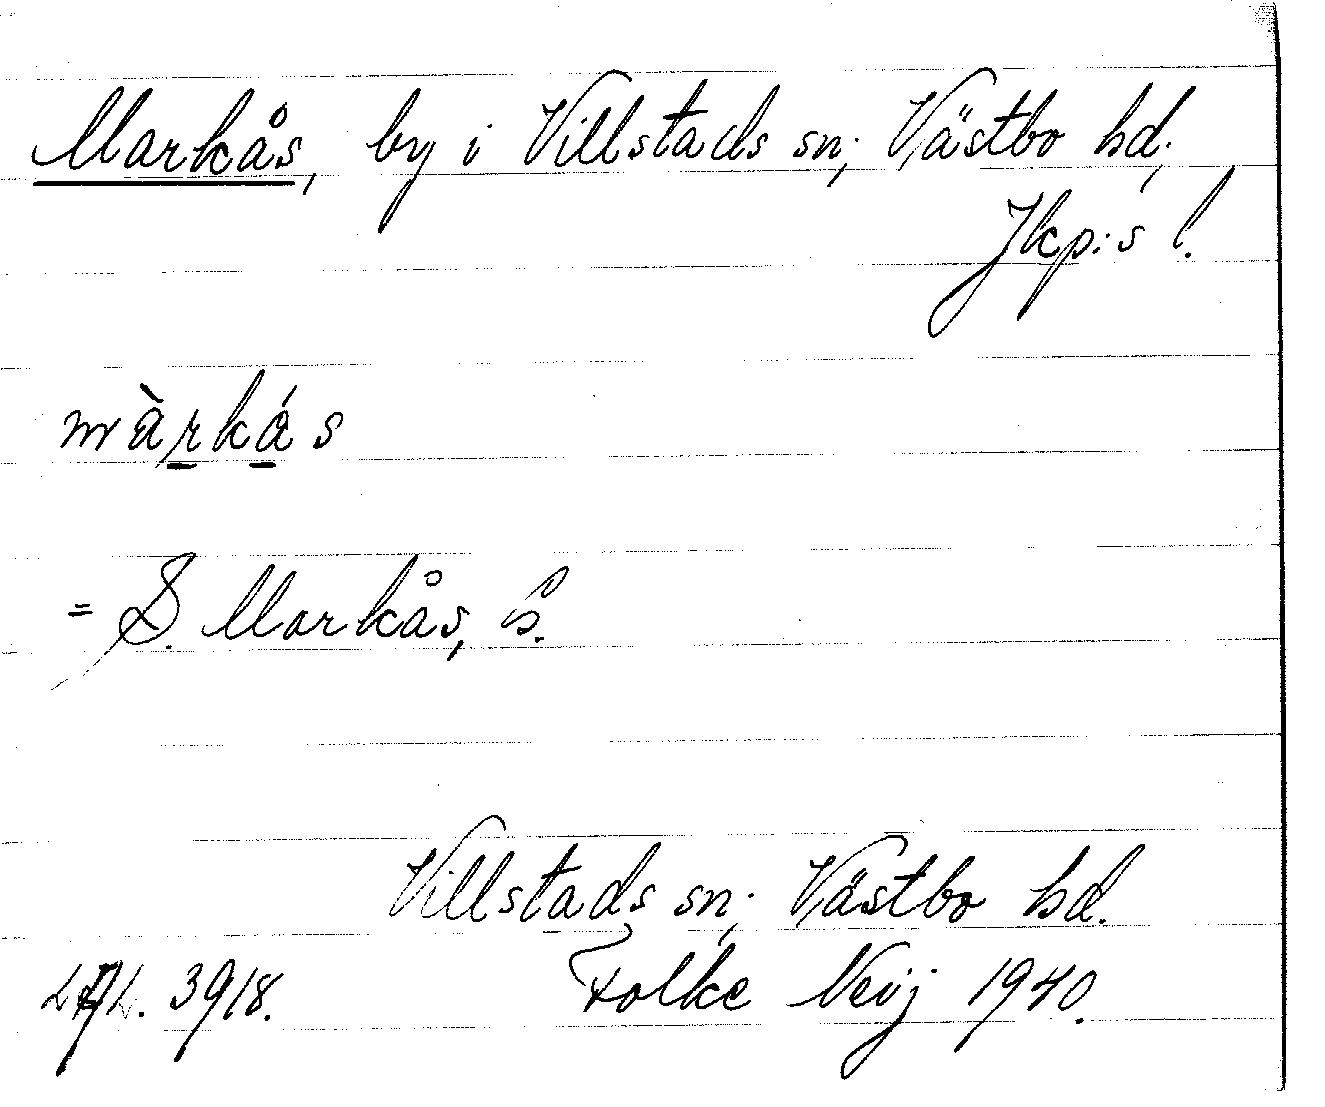 Markås, by i Villstads sn; Västbo hd,
Jkp:s l.
màrkás
= S. Markås, G.
Villstads sn; Västbo hd.
3918. Folke Neij 1940.